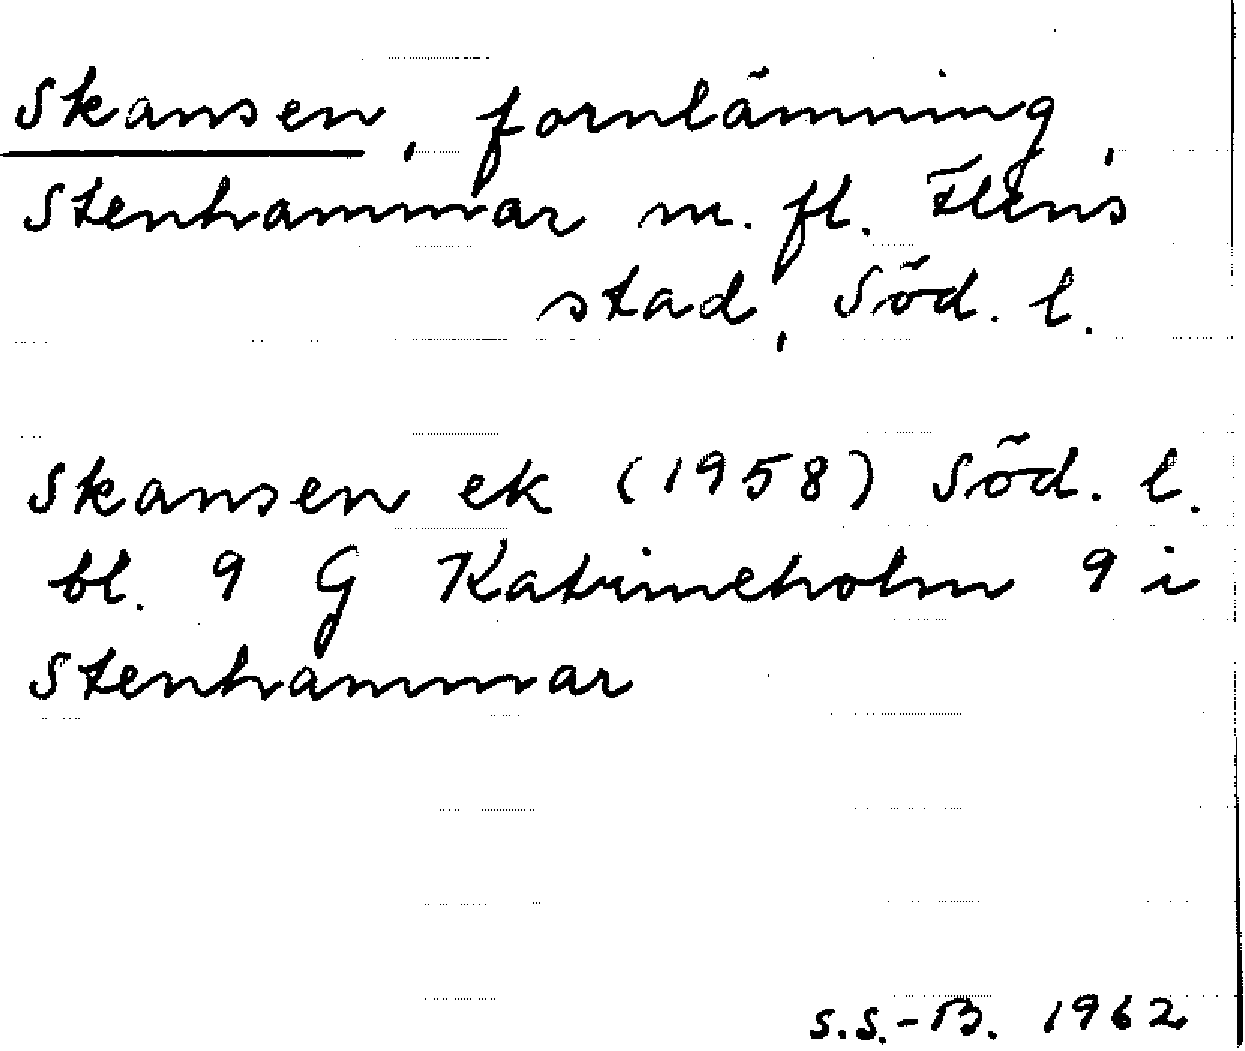 Skansen, fornlämning,
Stenhammar m. fl. Flens
stad, Söd. l.
Skansen ek (1958) Söd. l.
bl. 9 G Katrineholm 9 i
Stenhammar
S.S.-B. 1962